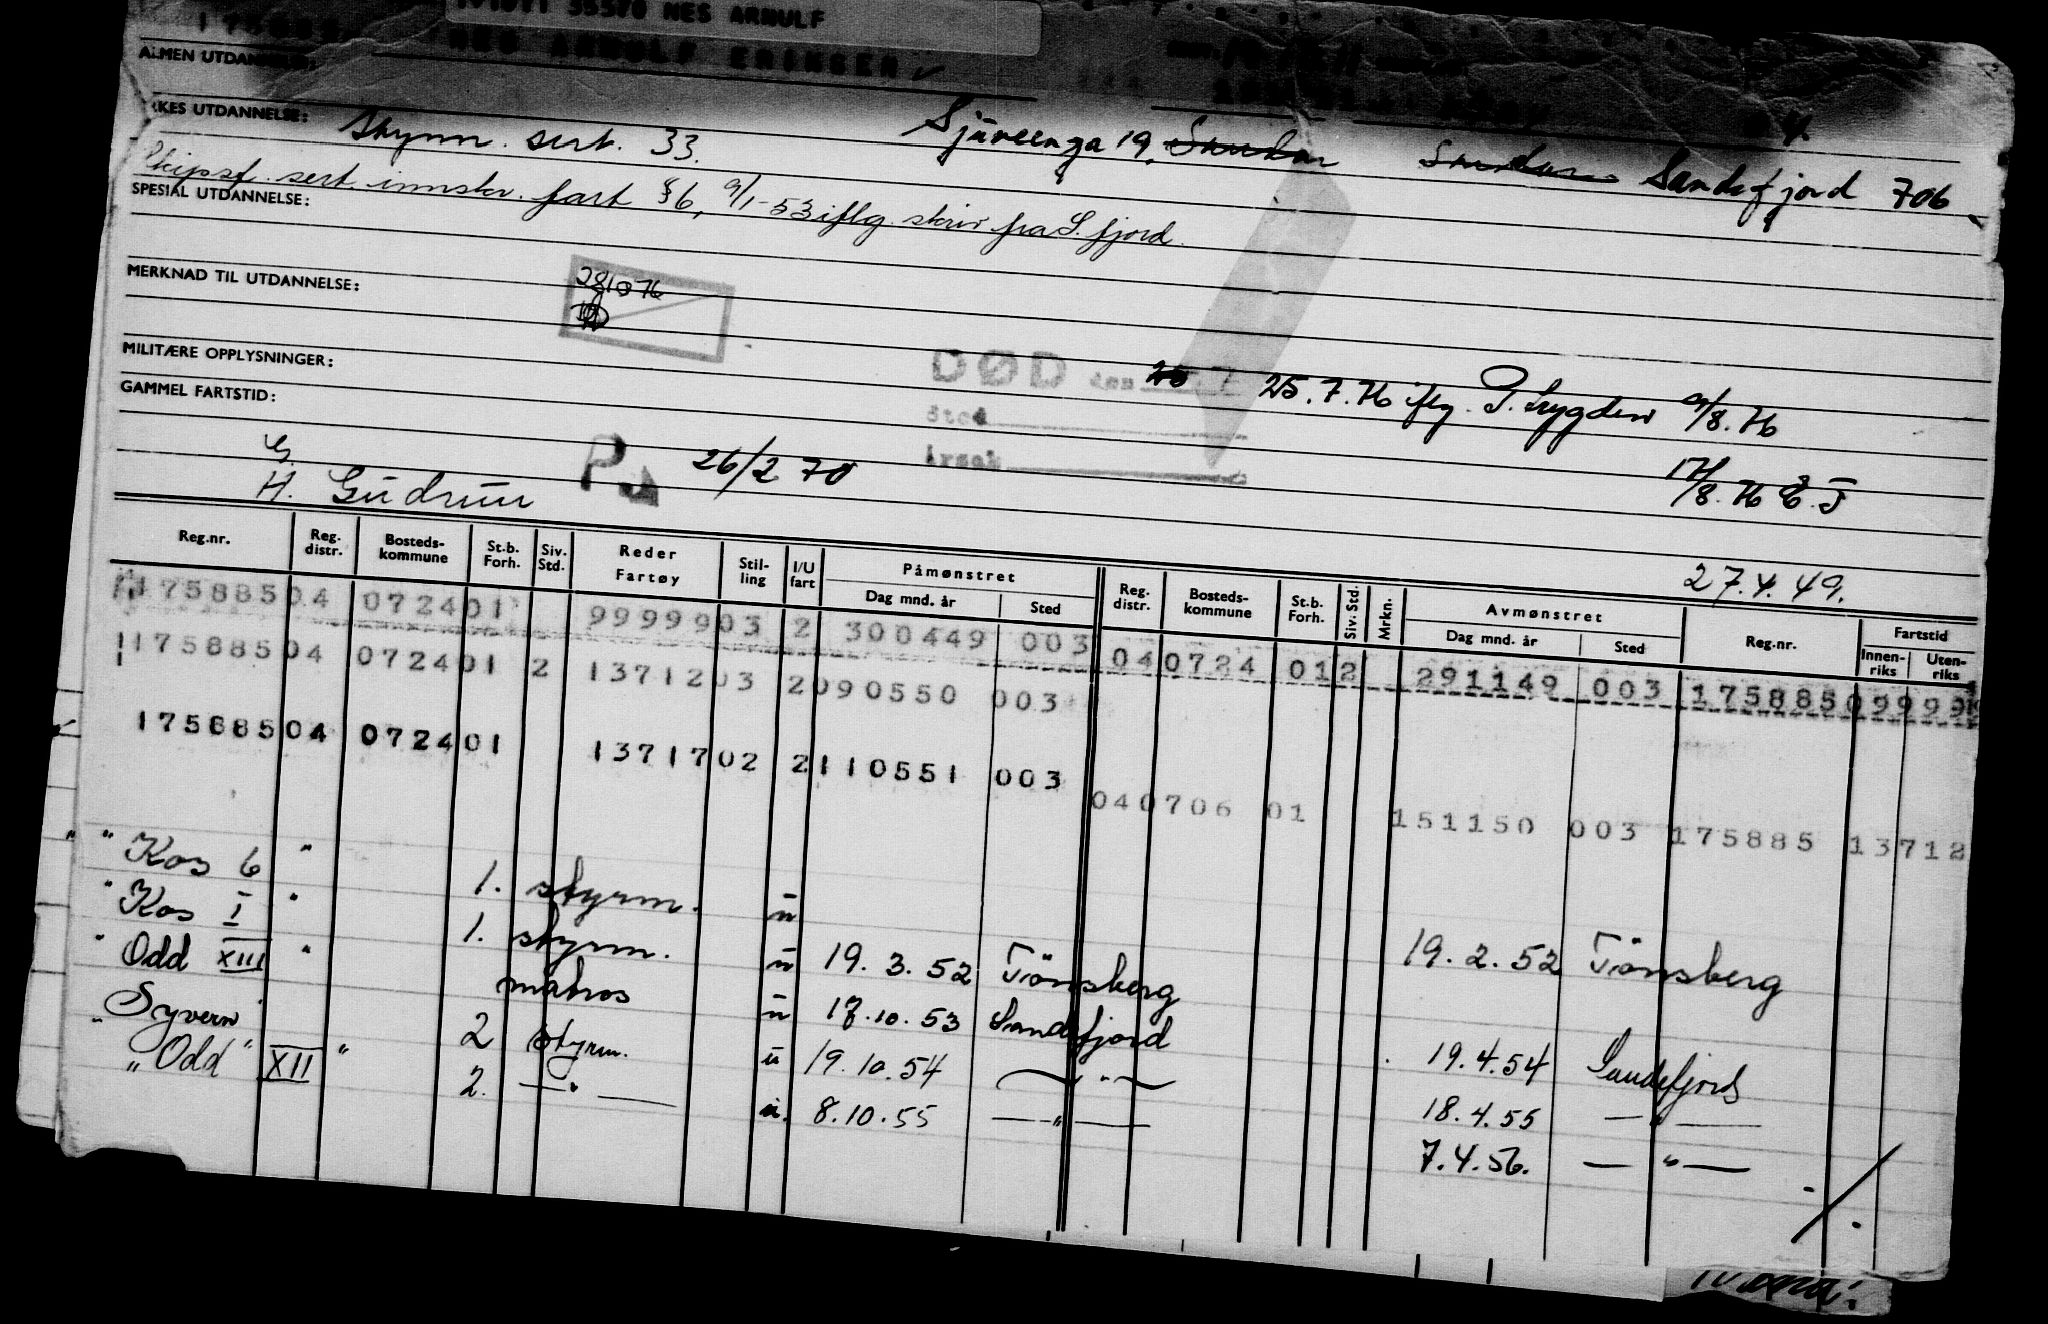 191071 35370 NES ARNULF
NES ARNULF ERIKSEN
ALMEN UTDANNELSE:
YRKES UTDANNELSE: Styrm. sert. 33. Sjøveenga 19, Sandefjord 706
Skipsf. sert. innskr. fart §6, 9/1-53 iflg. skriv fra S.fjord.
SPESIAL UTDANNELSE:
MERKNAD TIL UTDANNELSE:
281076
MILITÆRE OPPLYSNINGER:
DØD den 25.7.76 iflg. P. Trygden 9/8.76
GAMMEL FARTSTID:
Sted
Årsak
17/8.76
P 26/2 70
G.
H. Gudrun
27.4.49.
Reg.nr. Reg. distr. Bosteds-kommune St.b. Forh. Siv. Std. Reder Fartøy Stil-ling I/U fart Påmønstret Dag mnd. år Sted Reg. distr. Bosteds-kommune St.b. Forh. Siv. Std. Mrkn. Avmønstret Dag mnd. år Sted Reg.nr. Fartstid Innen-riks Uten-riks
175885 04 0724 01 99999 03 2 300449 003 04 0724 01 2 291149 003 175885 09999
175885 04 0724 01 2 13712 03 2 090550 003 04 0706 01 151150 003 175885 13712
175885 04 0724 01 13717 02 2 110551 003
" Kos 6 " 1. styrm. u 19.2.52 Tönsberg
" Kos I " 1. styrm. u 19.3.52 Tönsberg
" Odd XIII " matros u 17.10.53 Sandefjord 19.4.54 Sandefjord
" Syvern " 2 styrm. u 19.10.54 — " — 18.4.55 — " —
" Odd XII " 2. — " — u. 8.10.55 — " — 7.4.56. — " —